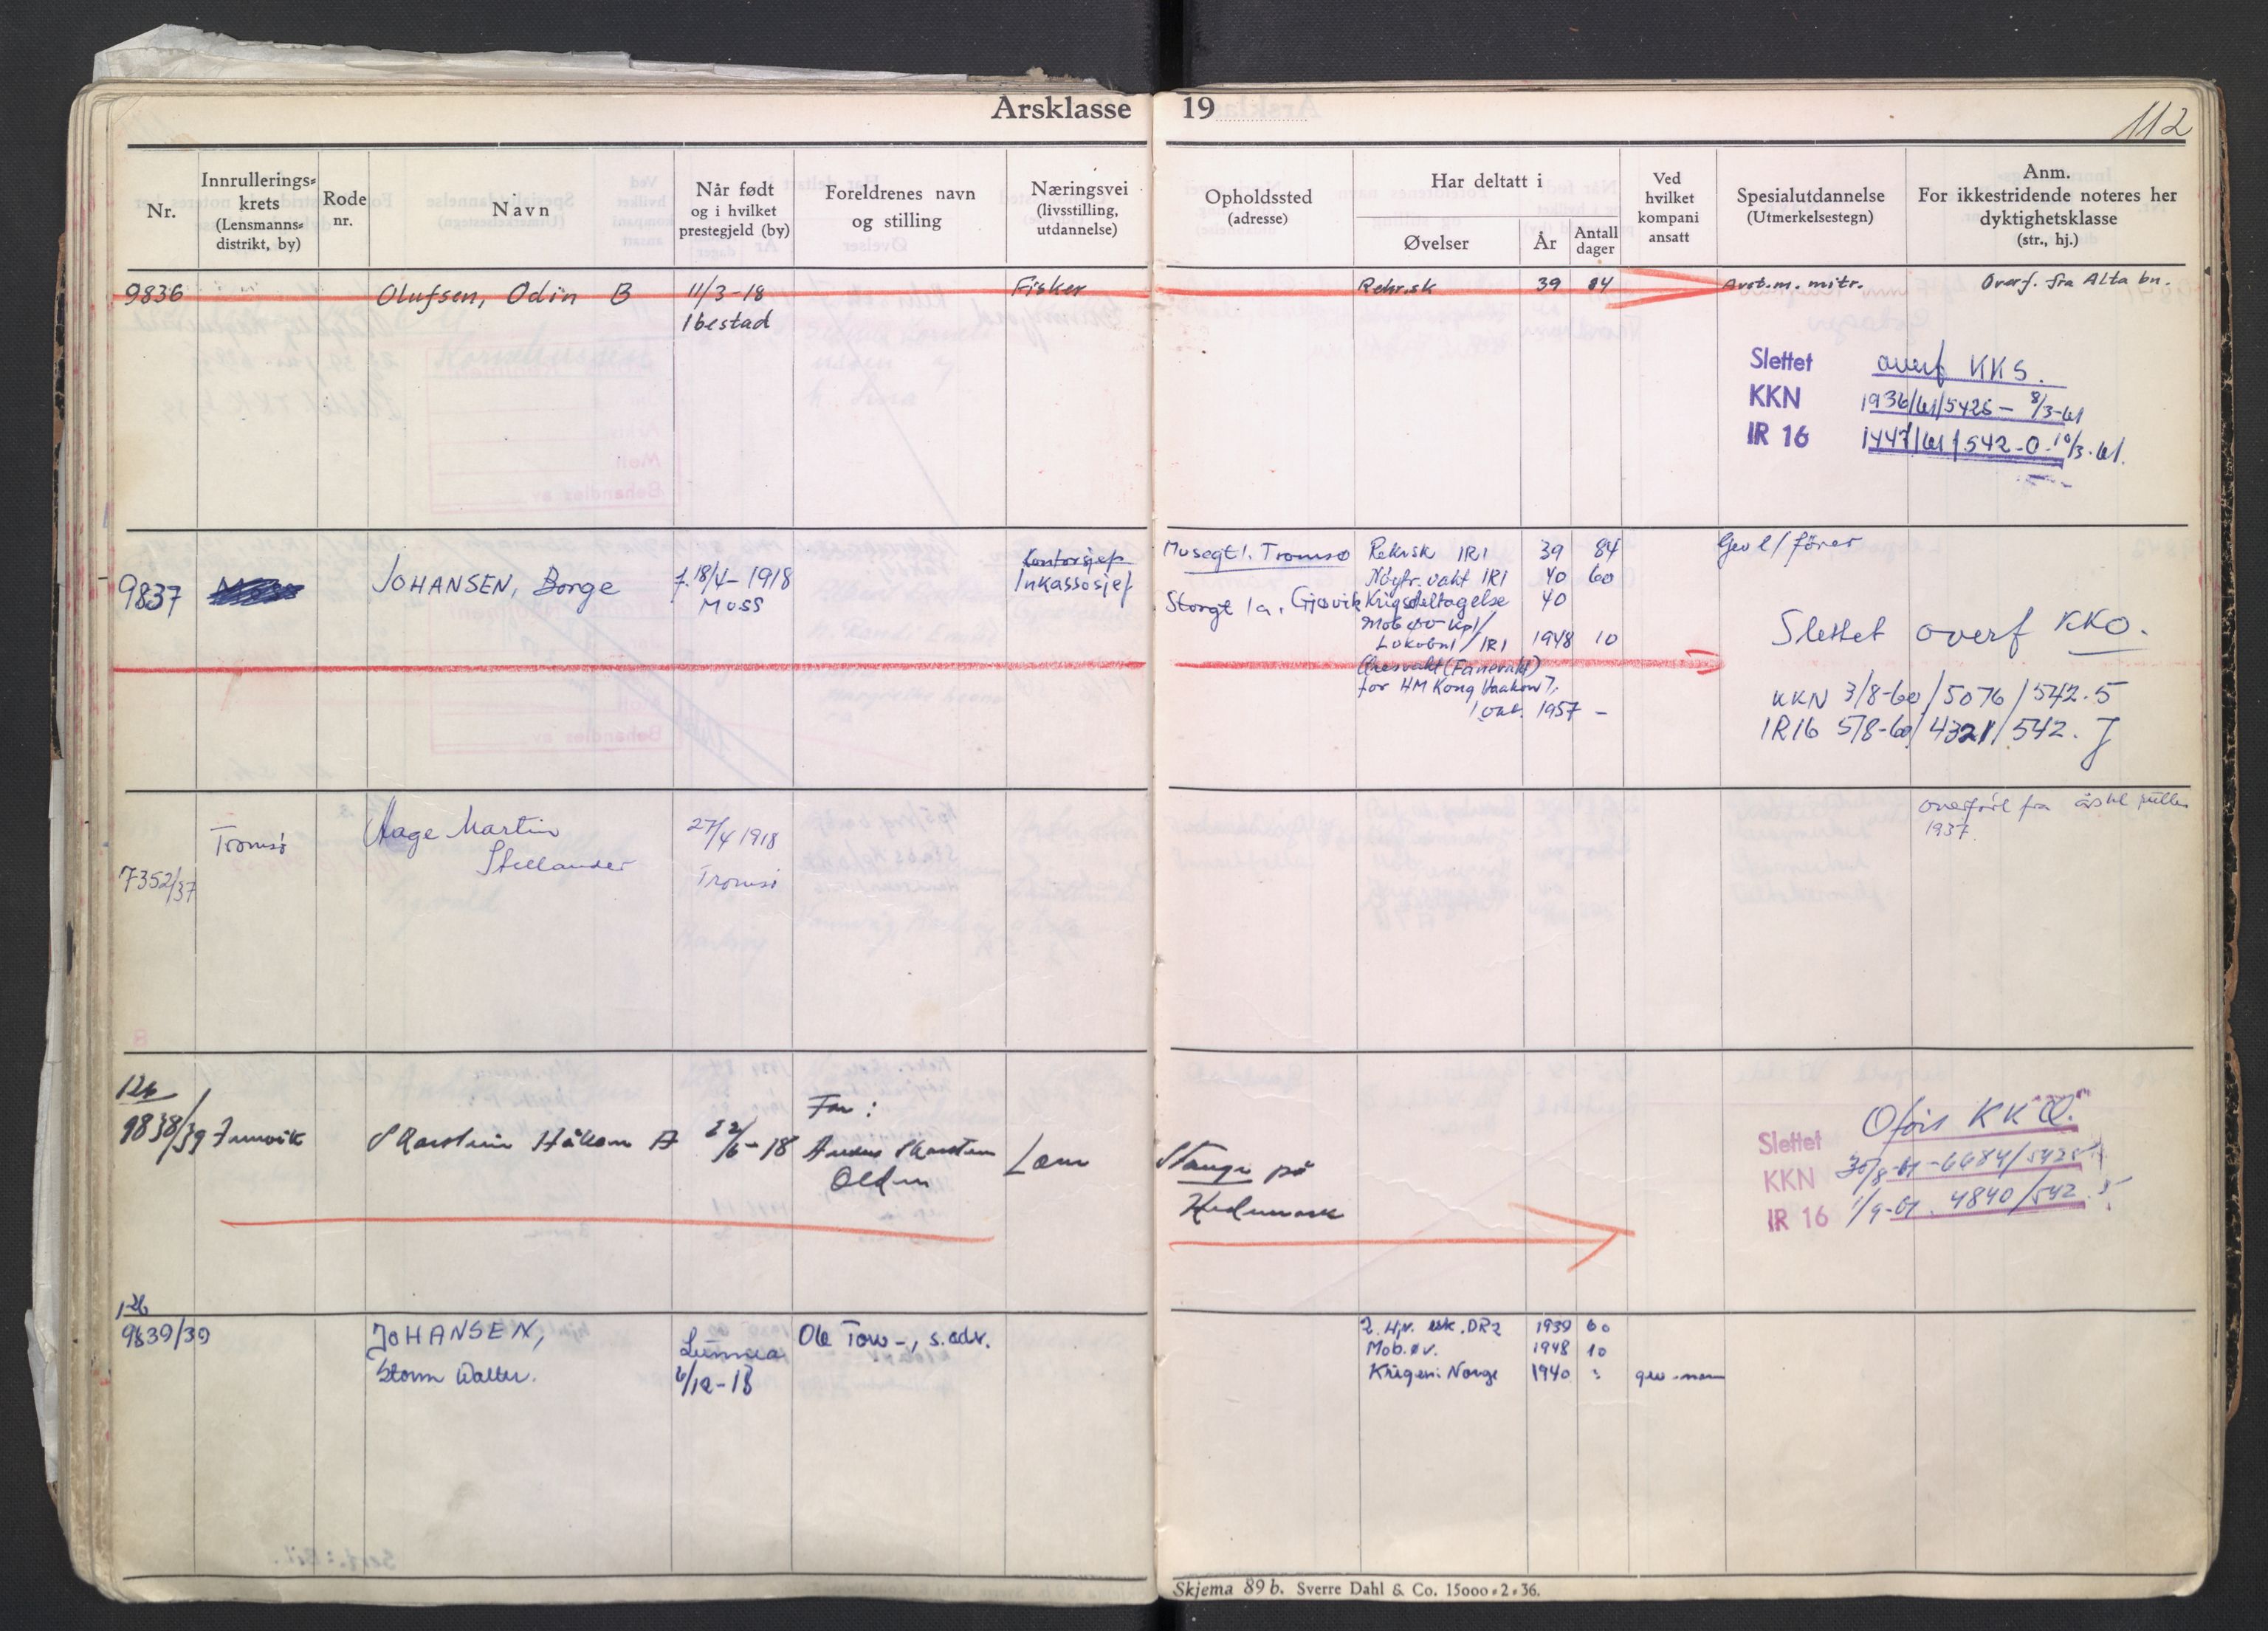 Årsklasse 19
112
Nr.
Innrullerings-
krets
(Lensmanns-
distrikt, by)
Rode
nr.
Navn
Når født
og i hvilket
prestegjeld (by)
Foreldrenes navn
og stilling
Næringsvei
(livsstilling,
utdannelse)
Opholdssted
(adresse)
Har deltatt i
Øvelser
År
Antall
dager
Ved
hvilket
kompani
ansatt
Spesialutdannelse
(Utmerkelsestegn)
Anm.
For ikkestridende noteres her
dyktighetsklasse
(str., hj.)
9836
Olufsen, Odin B
11/3-18
Ibestad
Fisker
Rekr.sk 39 84
Avst.m. mitr.
Overf. fra Alta bn.
Slettet overf KKS.
KKN 1936/61/5425 - 8/3-61
IR 16 1447/61/542-0. 10/3.61.
9837
JOHANSEN, Borge
f. 18/4-1918
Moss
Kontorsjef
Inkassosjef
Musegt 1. Tromsø
Storgt 1a. Gjøvik
Rekrsk IR1 39 84
Nøytr.vakt IR1 40 60
Krigsdeltagelse 40
Mob øv kp1/
Lokvbn1/IR1 1948 10
Æresvakt (Fanevakt)
for HM Kong Haakon 7.
1 okt. 1957 -
Gev l/fører
Slettet overf KKO.
KKN 3/8-60/5076/542.5
IR16 5/8-60/4321/542. J
7352/37
Tromsø
Aage Martin
Stellander
27/4 1918
Tromsø
overført fra årskl
1937.
126
9838/39
Skarstein Håkon A
22/6-18
Far:
Anders Skarstein
Olden
Stange på
Hedemark
Slettet Oførs KKO.
KKN 30/8-61-6684/5425
IR 16 1/9-61. 4840/542.5
126
9839/39
JOHANSEN,
Storm Walter.
6/12-18
Ole Tow-, s.adv.
2. Hjv. esk. DR2 1939 60
Mob.øv. 1948 10
Krigen i Norge 1940 :
gev.-mann
Skjema 89 b. Sverre Dahl & Co. 15000-2-36.